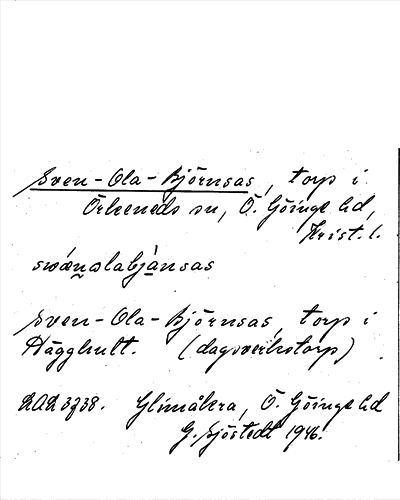 Sven-Ola-Björnsas, torp i
Örkeneds sn, Ö. Göinge hd,
Krist. l.
swǽnalabjänsas
Sven-Ola-Björnsas, torp i
Hägghult. (dagsverkstorp)
LAL 3738. Glimåkra, Ö. Göinge hd
G. Sjöstedt 1946.